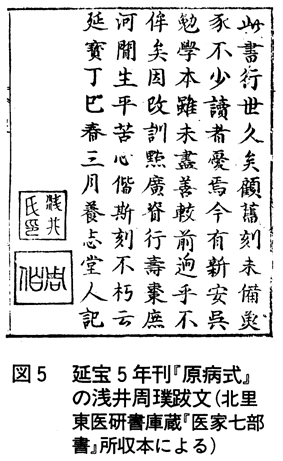 此書行世久矣顧舊刻未備魚
豕不少讀者憂焉今有新安呉
勉學本雖未盡善較前迥乎不
侔矣因改訓點廣資行壽棗庶
河間生平苦心偕斯刻不朽云
延寶丁巳春三月養志堂人記
淺井
氏印
図5 延宝5年刊『原病式』
の浅井周璞跋文(北里
東医研書庫蔵『医家七部
書』所収本による)